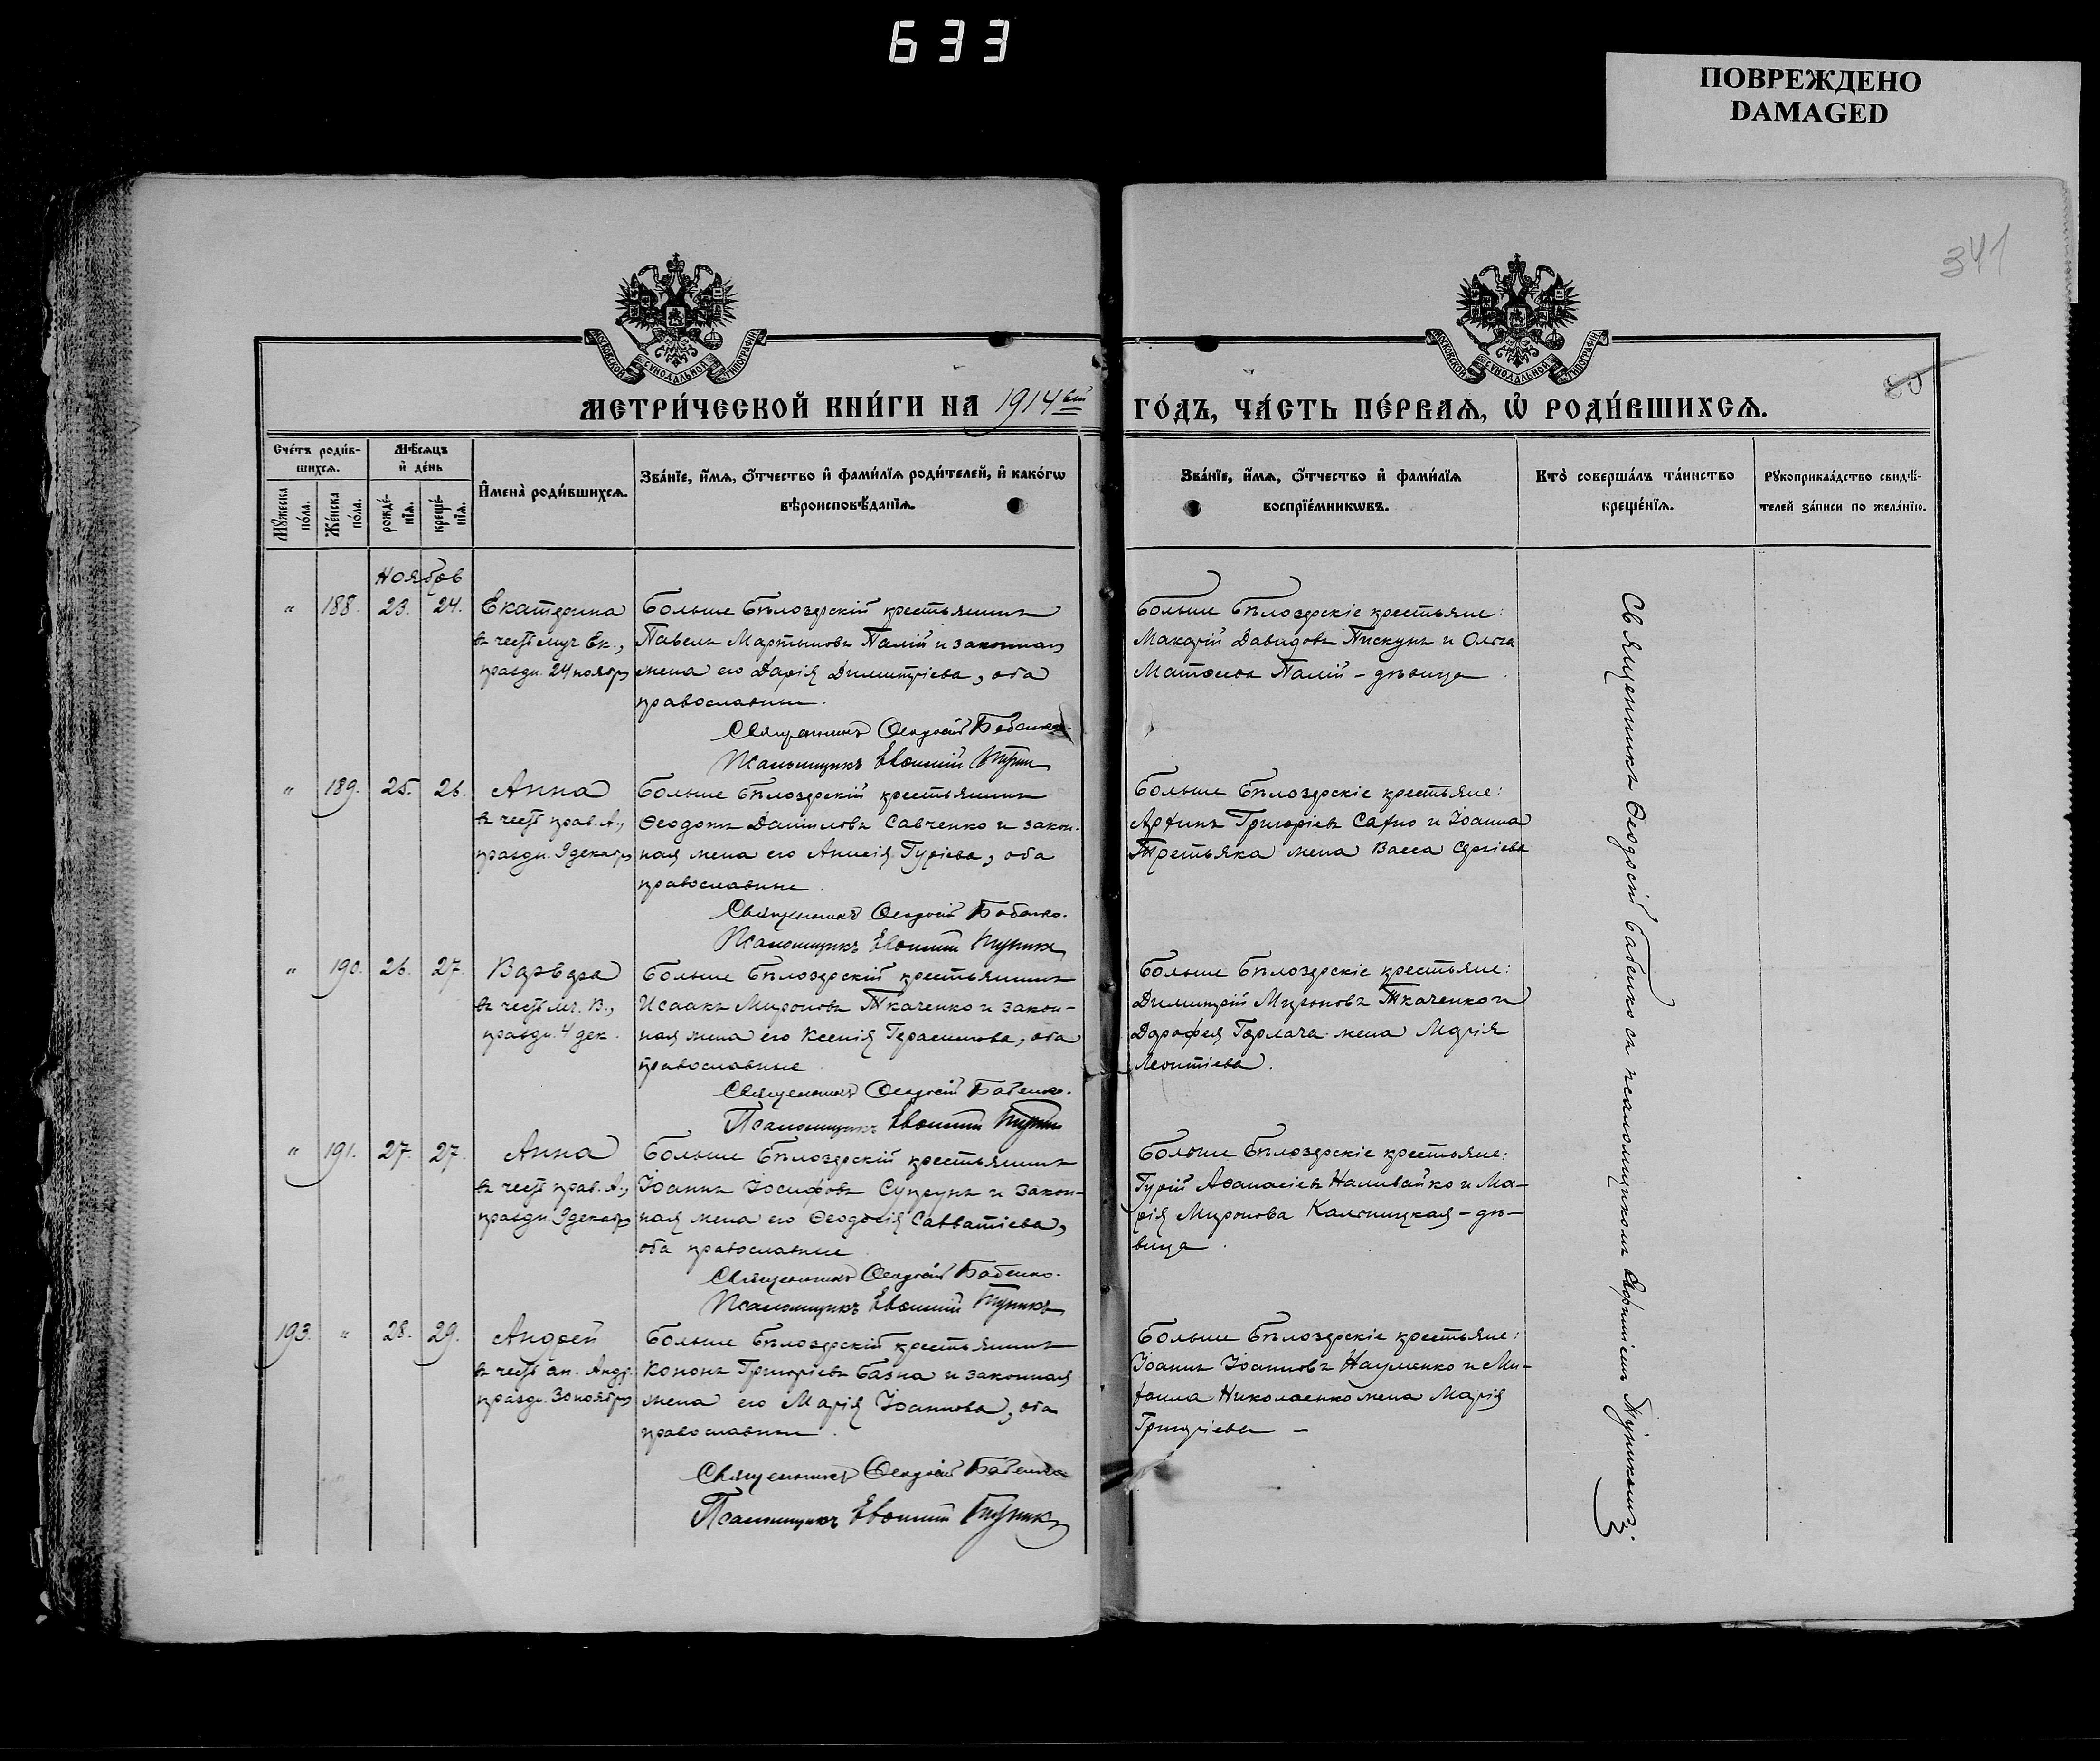 633
ПОВРЕЖДЕНО
DAMAGED
341
МОСКОВСКОЙ СУНОДАЛЬНОЙ ТИПОГРАФІИ
МОСКОВСКОЙ СУНОДАЛЬНОЙ ТИПОГРАФІИ
80
МЕТРИ́ЧЕСКОЙ КНИ́ГИ НА 1914ый ГО́ДЪ, ЧА́СТЬ ПЕ́РВАѦ, Ѽ РОДИ́ВШИХСѦ.
Сче́тъ роди́в-
шихсѧ.
Мꙋ́жеска
по́ла.
Же́нска
по́ла.
Мѣ́сѧцъ
и҆ де́нь
рожде́-
нїѧ.
креще́-
нїѧ.
И҆мена̀ роди́вшихсѧ.
Зва́нїе, и҆́мѧ, ѻ҆́тчество и҆ фами́лїѧ роди́телей, и҆ како́гѡ
вѣроисповѣ́данїѧ.
Зва́нїе, и҆́мѧ, ѻ҆́тчество и҆ фами́лїѧ
воспрїе́мникѡвъ.
Кто̀ соверша́лъ та́инство
креще́нїѧ.
Рꙋкоприкла́дство свидѣ́-
телей за́писи по жела́нїю.
Ноябрь
" 188. 23. 24. Екатерина
въ честь муч. Ек.,
праздн. 24 ноября
Больше Бѣлозерскій крестьянинъ
Павелъ Мартыновъ Палій и законная
жена его Дарія Димитріева, оба
православные.
Священникъ Ѳеодосій Бабенко.
Псаломщикъ Евѳимій Пуринъ
Больше Бѣлозерскіе крестьяне:
Макарій Давидовъ Пискунъ и Ольга
Матѳеева Палій - дѣвица
" 189. 25. 26. Анна
въ честь прав. А.,
праздн. 9 декабря
Больше Бѣлозерскій крестьянинъ
Ѳеодотъ Даніиловъ Савченко и закон-
ная жена его Анисія Гуріева, оба
православные.
Священникъ Ѳеодосій Бабенко.
Псаломщикъ Евѳимій
Больше Бѣлозерскіе крестьяне:
Григоріевъ и Іоанна
Третьяка жена Васса Сергіева
" 190. 26. 27. Варвара
въ честь мч. В.,
праздн. 4 дек.
Больше Бѣлозерскій крестьянинъ
Исаакъ Мироновъ Ткаченко и закон-
ная жена его Ксенія Герасимова, оба
православные
Священникъ Ѳеодосій Бабенко.
Псаломщикъ Евѳимій
Больше Бѣлозерскіе крестьяне:
Димитрій Мироновъ Ткаченко и
Дорофея Горлача жена Марія
Леонтіева.
" 191. 27. 27. Анна
въ честь прав. А.,
праздн. 9 декабря
Больше Бѣлозерскій крестьянинъ
Іоаннъ Іосифовъ Супрунъ и закон-
ная жена его Ѳеодосія Савватіева,
оба православные
Священникъ Ѳеодосій Бабенко.
Псаломщикъ Евѳимій
Больше Бѣлозерскіе крестьяне:
Гурій Аѳанасіевъ Наливайко и Ма-
рія Миронова - дѣ-
вица.
193. " 28. 29. Андрей
въ честь ап. Андр.
праздн. 30 ноября
Больше Бѣлозерскій крестьянинъ
Кононъ Григоріевъ Базна и законная
жена его Марія Іоаннова, оба
православные.
Священникъ Ѳеодосій Бабенко
Псаломщикъ Евѳимій
Больше Бѣлозерскіе крестьяне:
Іоаннъ Іоанновъ Науменко и Ми-
хаила Николаенко жена Марія
Григоріева -
Священникъ Ѳеодосій Бабенко съ псаломщикомъ Евфиміемъ